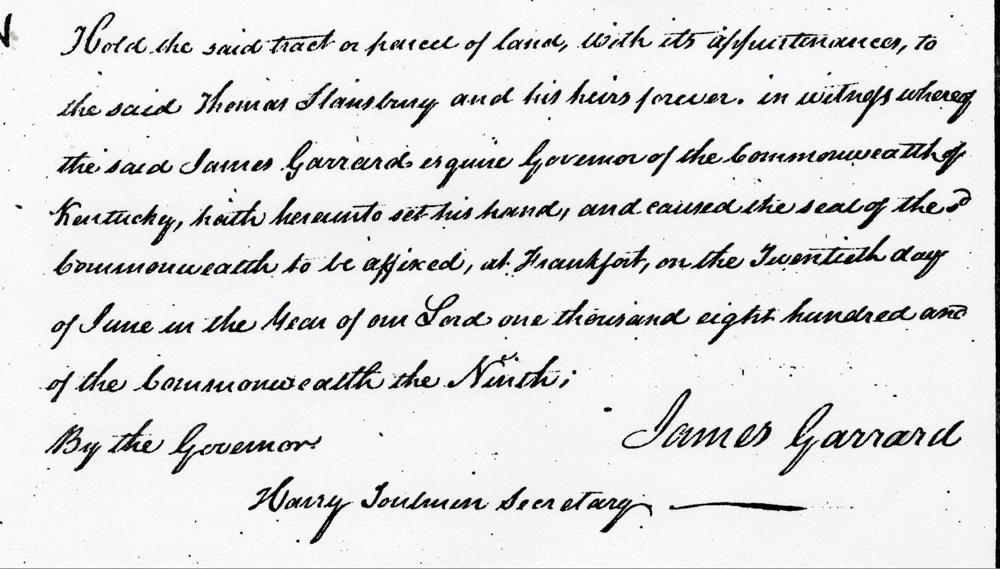 Hold the said tract or parcel of land, With its appurtenances, to
the said Thomas Stansbury and his heirs forever. in witness whereof
the said James Garrard esquire Governor of the Commonwealth of
Kentucky, hath hereunto set his hand, and caused the seal of the sd
Commonwealth to be affixed, at Frankfort, on the Twentieth day
of June in the Year of our Lord one thousand eight hundred and
of the Commonwealth the Ninth;
By the Governor James Garrard
Harry Toulmin Secretary